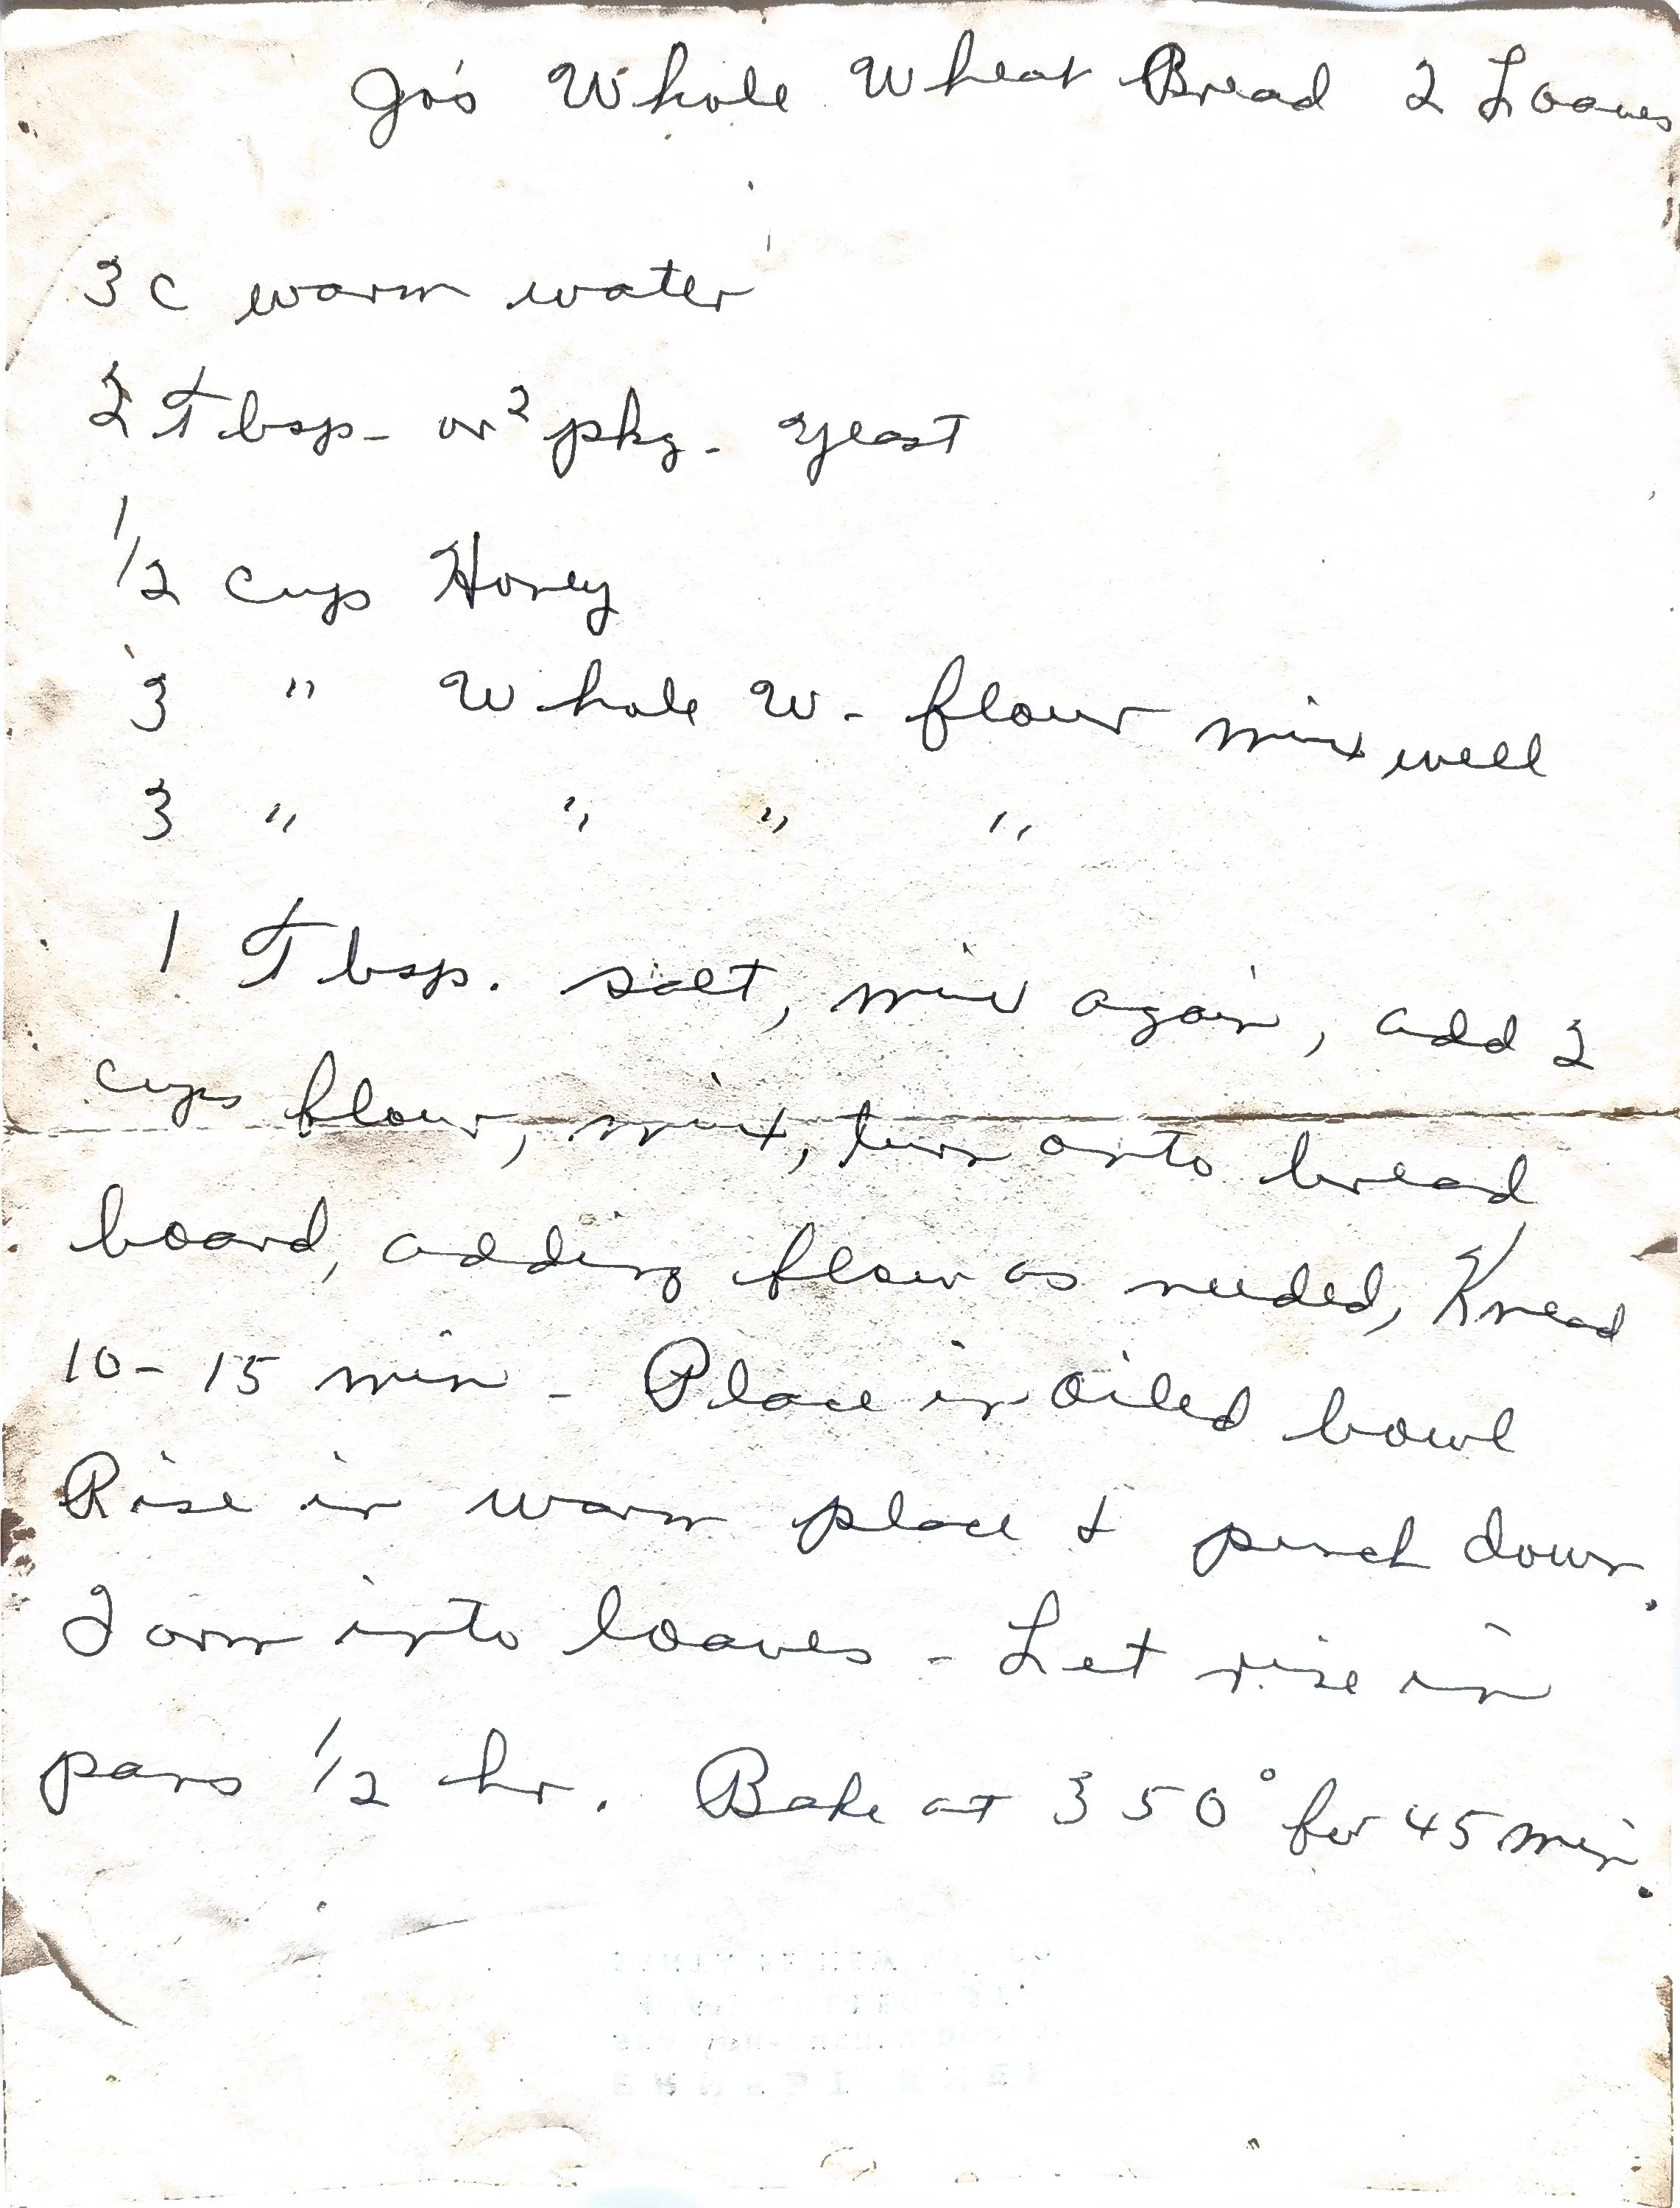 Jo's Whole Wheat Bread 2 Loaves
3 c warm water
2 Tbsp- or 2 pkg. yeast
1/2 cups Honey
3 " Whole W- flour mix well
3 " " " "
1 Tbsp. salt, mix again, add 2
cups flour, mix, turn onto bread
board, adding flour as needed, Knead
10-15 min - Place in oiled bowl
Rise in warm place & punch down.
Form into loaves - Let rise in
pans 1/2 hr. Bake at 350° for 45 min.